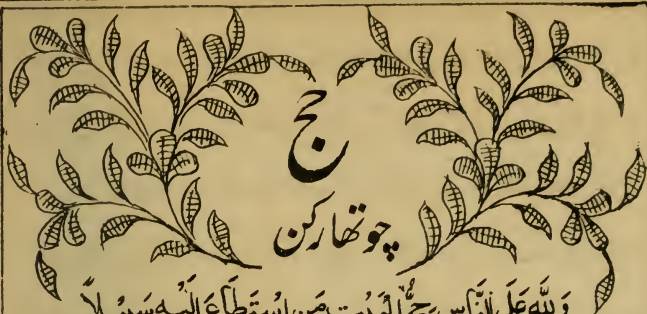 حج
چوتھا رکن
وَلِلّٰهِ عَلَى النَّاسِ حِجُّ الْبَيْتِ مَنِ اسْتَطَاعَ اِلَيْهِ سَبِيْلًا